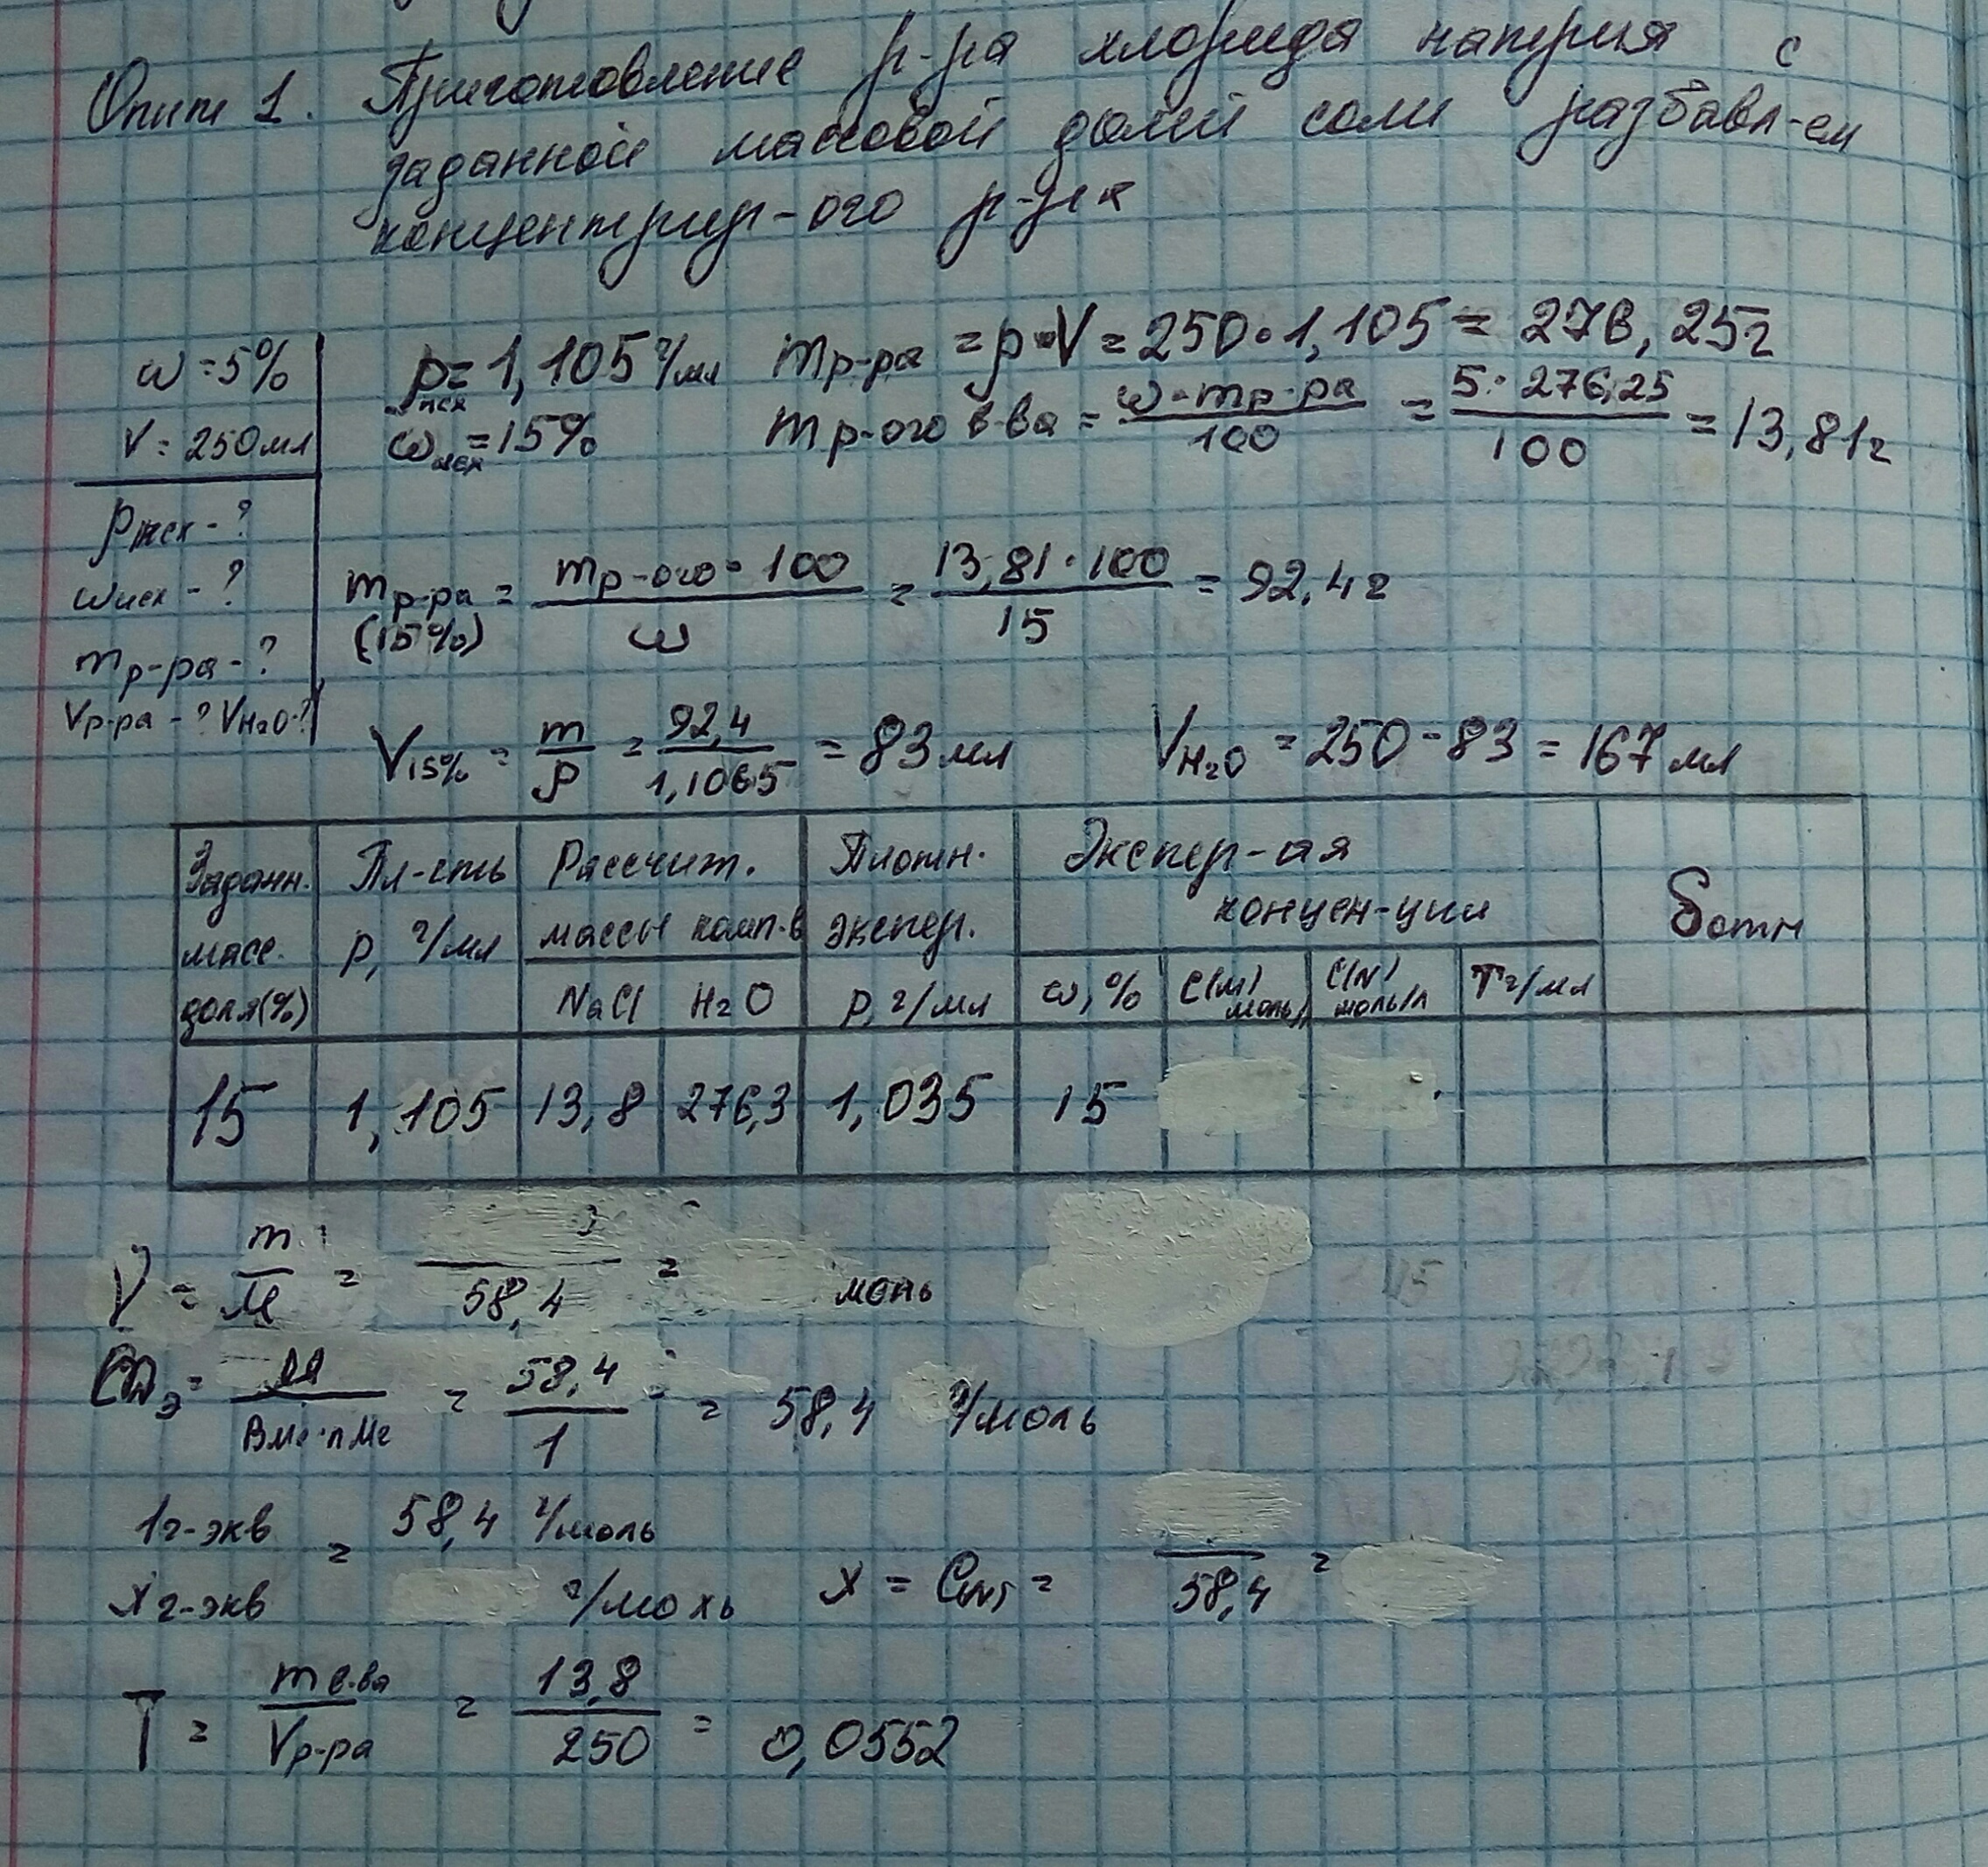 Опыт 1. Приготовление р-ра хлорида натрия с
заданной массовой долей соли разбавл-ем
концентрир-ого р-ра
ω = 5%
V = 250 мл
ρисх - ?
ωисх - ?
mр-ра - ?
Vр-ра - ? VH2O - ?
ρисх = 1,105 г/мл mр-ра = ρ·V = 250·1,105 = 276,25 г
ωисх = 15% mр-ого в-ва = ω·mр-ра / 100 = 5·276,25 / 100 = 13,81 г
mр-ра (15%) = mр-ого·100 / ω = 13,81·100 / 15 = 92,4 г
V15% = m / ρ = 92,4 / 1,1065 = 83 мл VH2O = 250 - 83 = 167 мл
Заданн. масс. доля (%)
Пл-сть ρ, г/мл
Рассчит. массы комп-в
NaCl H2O
Плотн. экспер. ρ, г/мл
Экспер-ая концен-ции
ω, % C(M) моль/л C(N) моль/л T г/мл
δотн
15 1,105 13,8 276,3 1,035 15
V = m / M = / 58,4 = моль
mэ = M / BMe·nMe = 58,4 / 1 = = 58,4 г/моль
1 г-экв = 58,4 г/моль
x г-экв г/мохь x = C(N) = / 58,4 =
T = mв-ва / Vр-ра = 13,8 / 250 = 0,0552